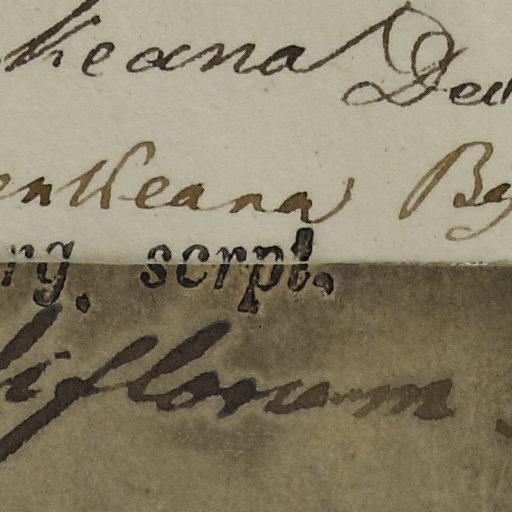 heana Dec
entheana By
rg. scrpt.
liflorum